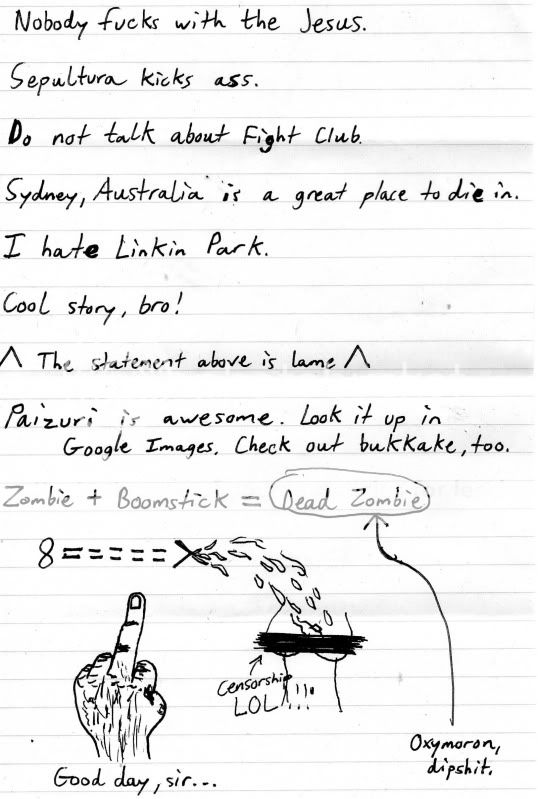 Nobody fucks with the Jesus.
Sepultura kicks ass.
Do not talk about Fight Club.
Sydney, Australia is a great place to die in.
I hate Linkin Park.
Cool story, bro!
^ The statement above is lame ^
Paizuri is awesome. Look it up in
Google Images. Check out bukkake, too.
Zombie + Boomstick = Dead Zombie
8=====>
Censorship
LOL!!!!
Oxymoron,
dipshit.
Good day, sir...